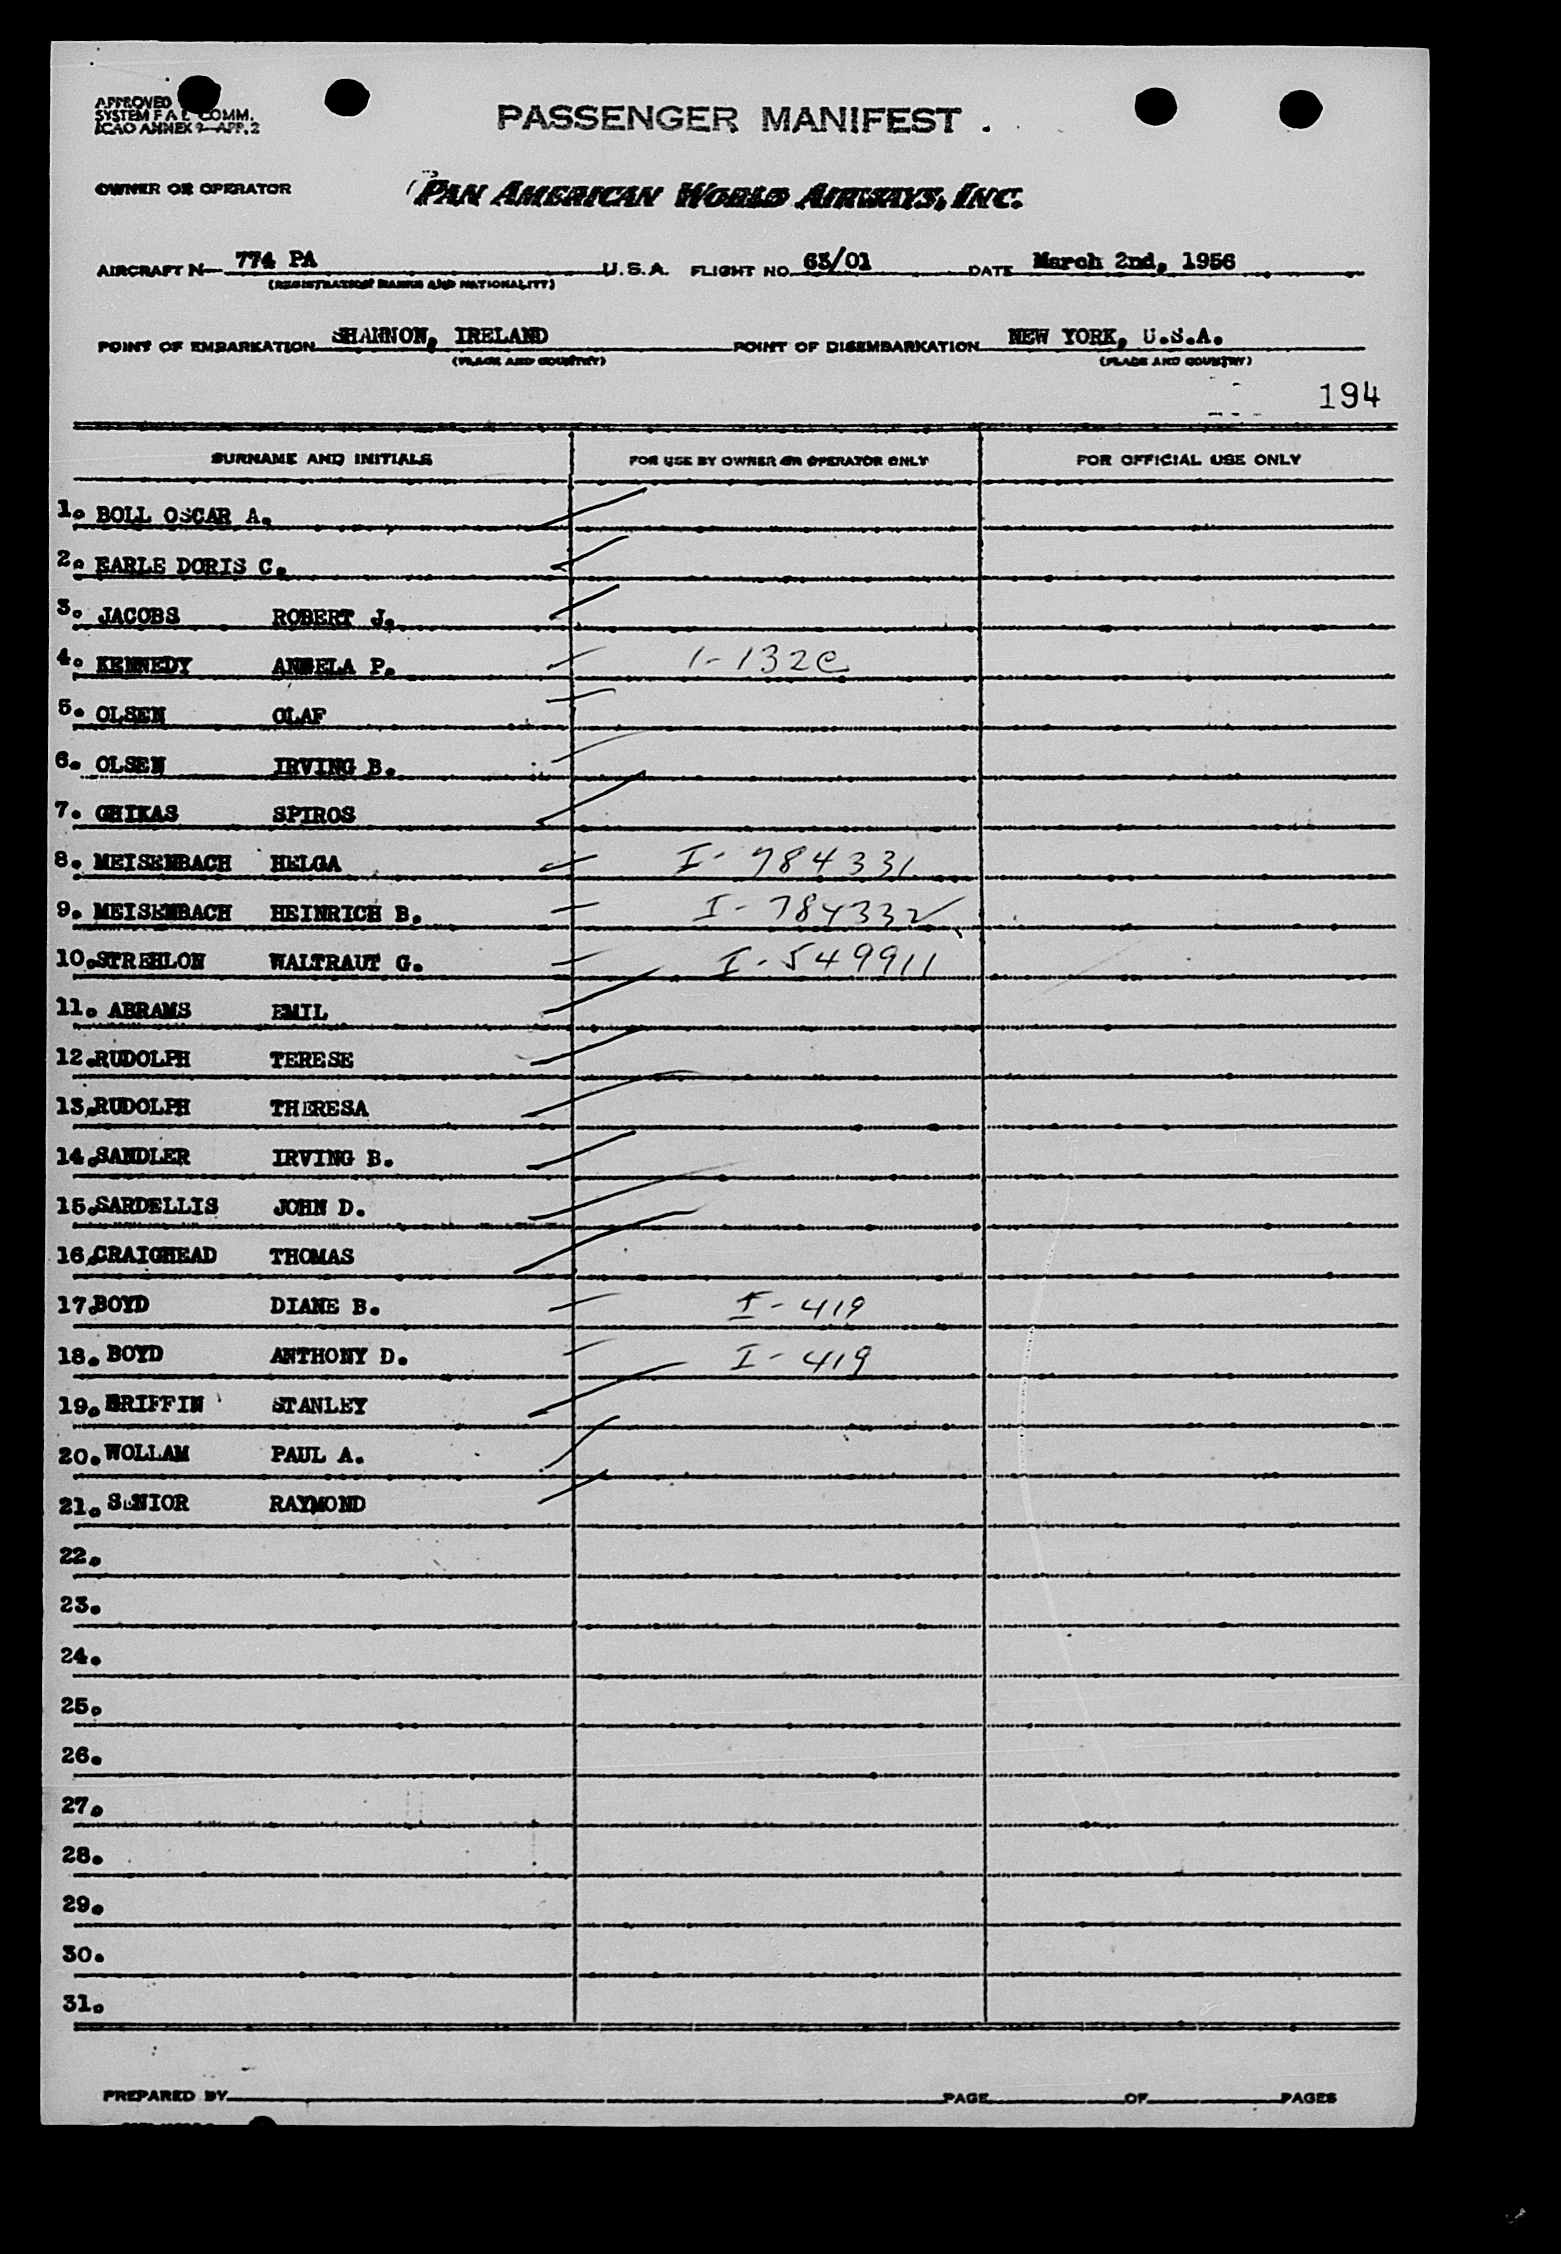 APPROVED
SYSTEM F A L COMM.
ICAO ANNEX 9—APP. 2
PASSENGER MANIFEST
OWNER OR OPERATOR PAN AMERICAN WORLD AIRWAYS, INC.
AIRCRAFT N— 774 PA U.S.A. FLIGHT NO. 65/01 DATE March 2nd, 1956
(REGISTRATION MARKS AND NATIONALITY)
POINT OF EMBARKATION SHANNON, IRELAND POINT OF DISEMBARKATION NEW YORK, U.S.A.
(PLACE AND COUNTRY) (PLACE AND COUNTRY)
194
SURNAME AND INITIALS FOR USE BY OWNER OR OPERATOR ONLY FOR OFFICIAL USE ONLY
1. BOLL OSCAR A.
2. EARLE DORIS C.
3. JACOBS ROBERT J.
4. KENNEDY ANGELA P. 1-132C
5. OLSEN OLAF
6. OLSEN IRVING B.
7. GHIKAS SPIROS
8. MEISENBACH HELGA I-784331
9. MEISENBACH HEINRICH B. I-784332
10. STREHLON WALTRAUT G. I-549911
11. ABRAMS EMIL
12. RUDOLPH TERESE
13. RUDOLPH THERESA
14. SANDLER IRVING B.
15. SARDELLIS JOHN D.
16. CRAIGHEAD THOMAS
17. BOYD DIANE B. I-419
18. BOYD ANTHONY D. I-419
19. GRIFFIN STANLEY
20. WOLLAM PAUL A.
21. SENIOR RAYMOND
22.
23.
24.
25.
26.
27.
28.
29.
30.
31.
PREPARED BY PAGE OF PAGES